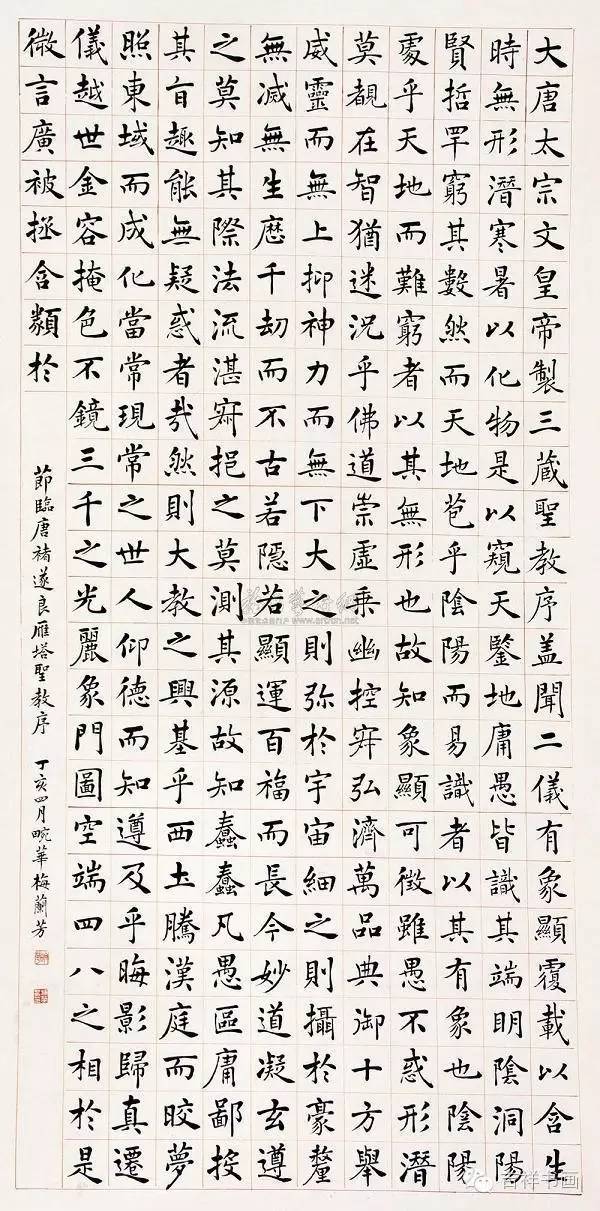 大唐太宗文皇帝製三藏聖教序盖聞二儀有象顯覆載以含生
時無形潛寒暑以化物是以窺天鑒地庸愚皆識其端明陰洞陽
賢哲罕窮其數然而天地苞乎陰陽而易識者以其有象也陰陽
處乎天地而難窮者以其無形也故知象顯可徵雖愚不惑形潛
莫覩在智猶迷況乎佛道崇虛乘幽控寂弘濟萬品典御十方舉
威靈而無上抑神力而無下大之則弥於宇宙細之則攝於豪釐
無滅無生歷千劫而不古若隱若顯運百福而長今妙道凝玄遵
之莫知其際法流湛寂挹之莫測其源故知蠢蠢凡愚區庸鄙投
其旨趣能無疑惑者哉然則大教之興基乎西土騰漢庭而皎夢
照東域而成化當常現常之世人仰德而知遵及乎晦影歸真遷
儀越世金容掩色不鏡三千之光麗象門圖空端四八之相於是
微言廣被拯含類於
節臨唐褚遂良雁塔聖教序 丁亥四月畹華梅蘭芳
吉祥书画